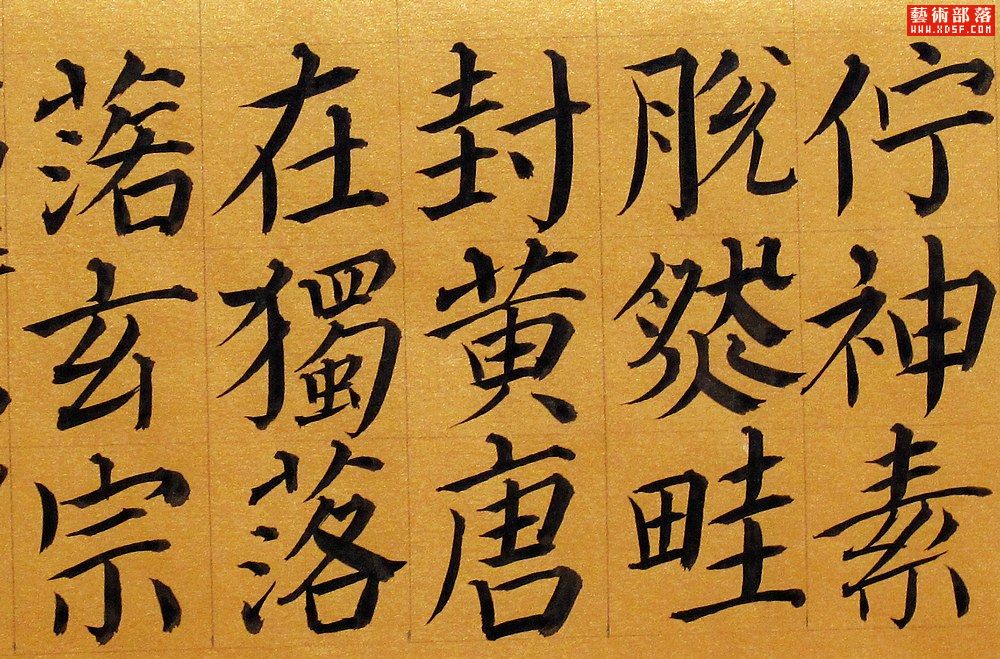 佇神素
脱然畦
封黄唐
在獨落
落玄宗
藝術部落
WWW.XDSF.COM